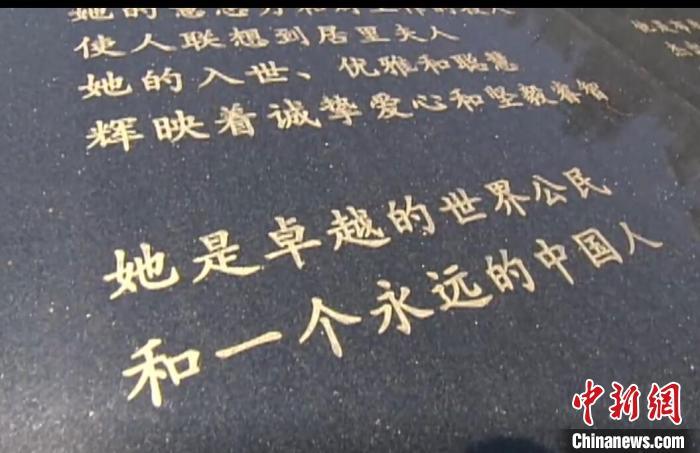 她的意志力和对工作的投入
使人联想到居里夫人
她的入世、优雅和聪慧
辉映着诚挚爱心和坚毅睿智
她是卓越的世界公民
和一个永远的中国人
中新网
Chinanews.com